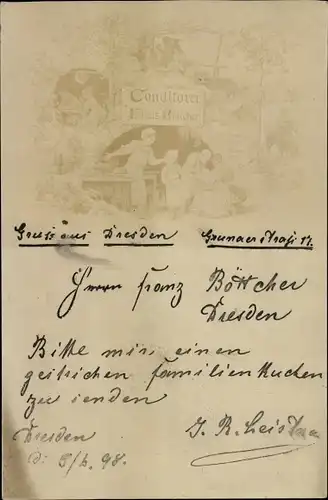 Conditorei
Gruss aus Dresden Grunaerstraße 17.
Herrn Franz Böttcher
Dresden
Bitte mir einen
Familienkuchen
zu senden
Dresden
d. 5/6. 98. J. R. Leistner